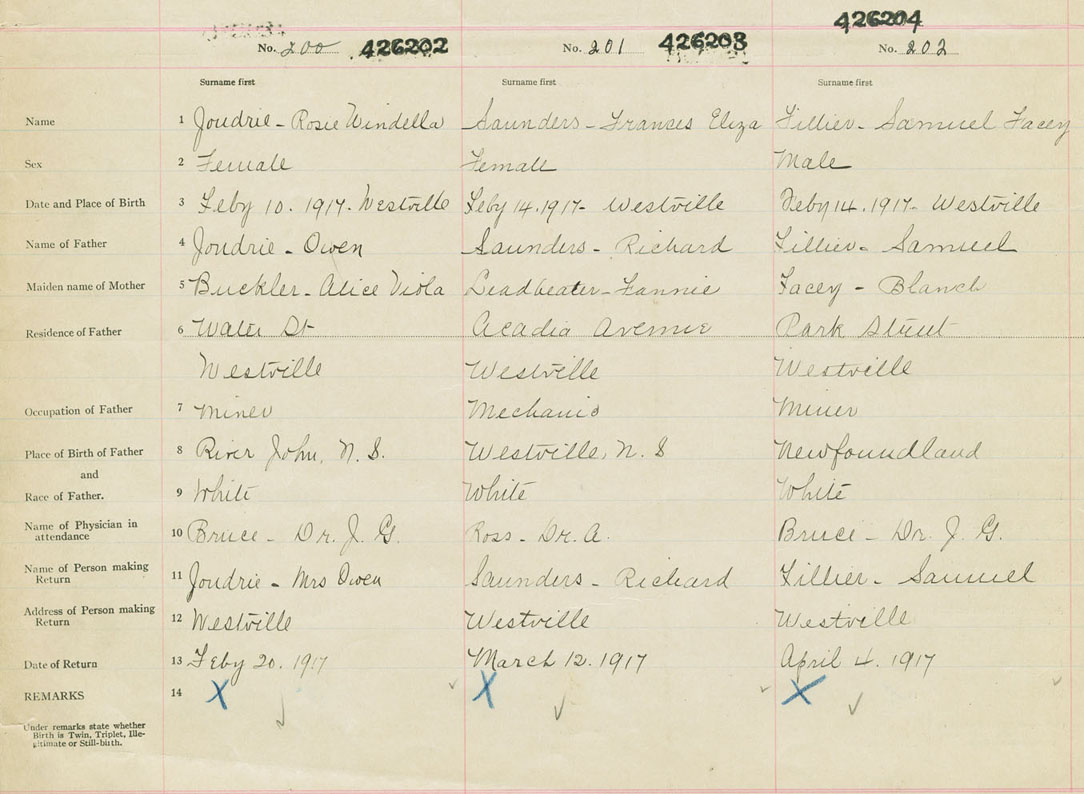 426204
No. 200 426202 No. 201 426203 No. 202
Surname first Surname first Surname first
Name 1 Joudrie - Rosie Windella Saunders - Frances Eliza Fillier - Samuel Facey
Sex 2 Female Female Male
Date and Place of Birth 3 Feby 10. 1917 - Westville Feby 14. 1917 - Westville Feby 14. 1917 - Westville
Name of Father 4 Joudrie - Owen Saunders - Richard Fillier - Samuel
Maiden name of Mother 5 Buckler - Alice Viola Leadbeater - Fannie Facey - Blanch
Residence of Father 6 Water St Acadia Avenue Park Street
Westville Westville Westville
Occupation of Father 7 Miner Mechanic Miner
Place of Birth of Father 8 River John, N. S. Westville, N. S Newfoundland
and
Race of Father. 9 White White White
Name of Physician in
attendance 10 Bruce - Dr. J. G. Ross - Dr. A. Bruce - Dr. J. G.
Name of Person making
Return 11 Joudrie - Mrs Owen Saunders - Richard Fillier - Samuel
Address of Person making
Return 12 Westville Westville Westville
Date of Return 13 Feby 20. 1917 March 12. 1917 April 4. 1917
REMARKS 14
Under remarks state whether
Birth is Twin, Triplet, Ille-
gitimate or Still-birth.